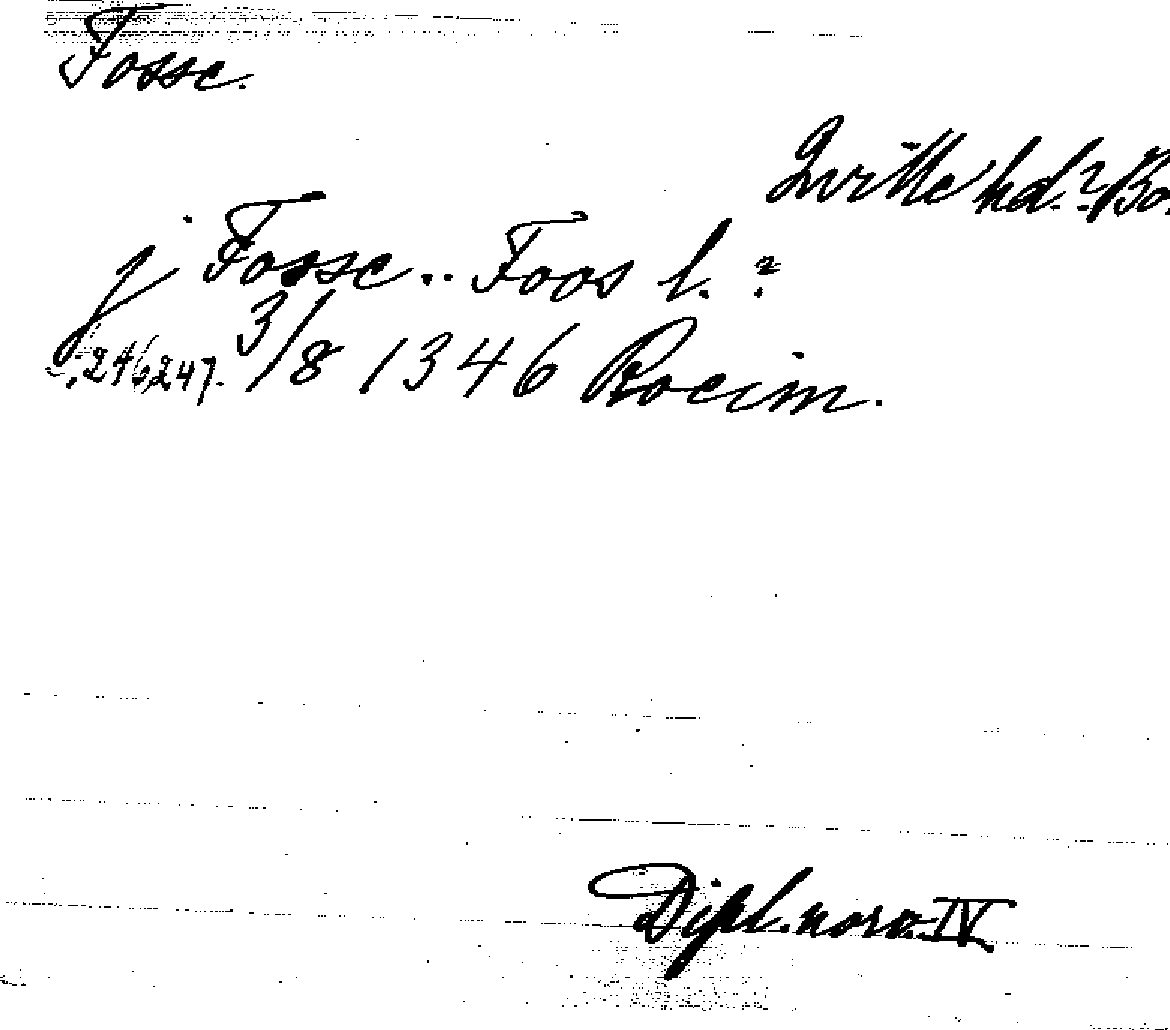 Fosse.
Qville hd.? Bo.
j Fosse.. Foos l. ?
s. 246, 247. 3/8 1346 Roeim.
Dipl. norv. IV